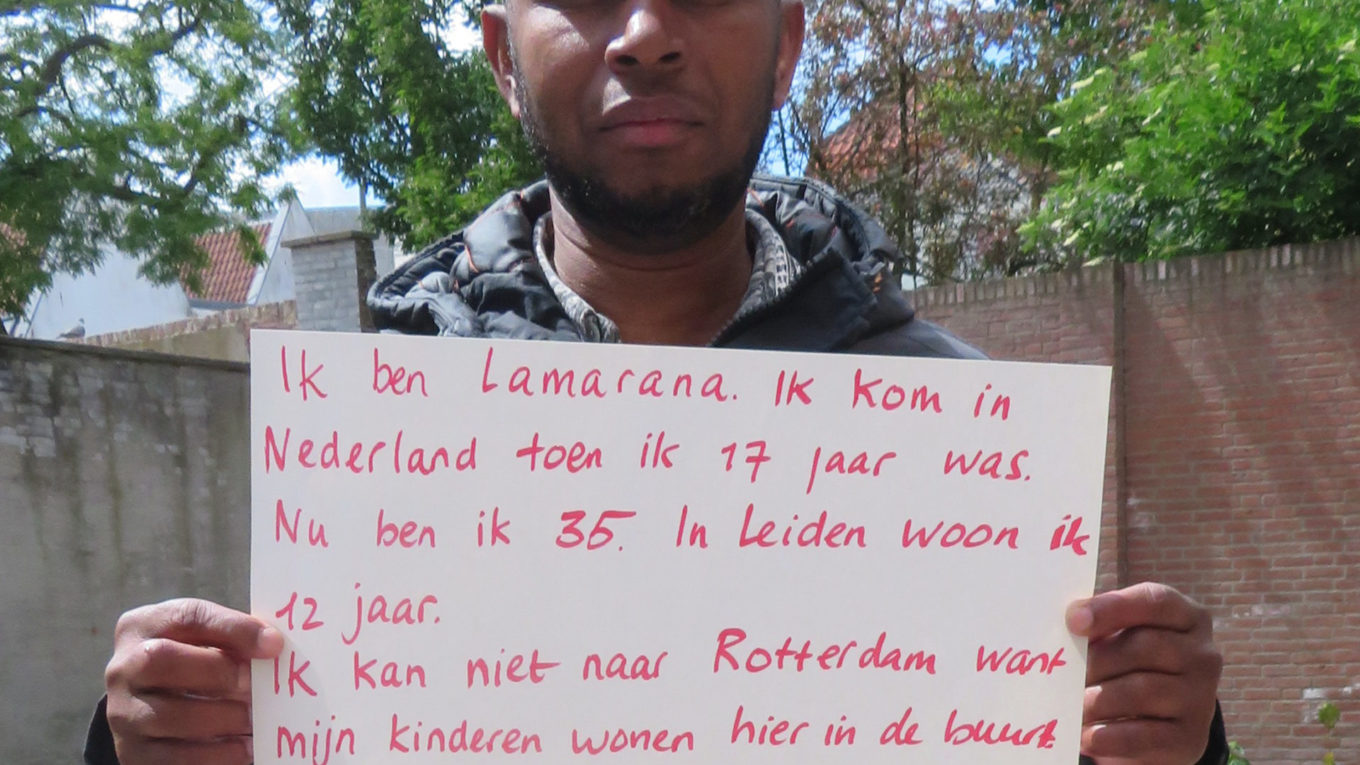 Ik ben Lamarana. Ik kom in
Nederland toen ik 17 jaar was.
Nu ben ik 35. In Leiden woon ik
12 jaar.
Ik kan niet naar Rotterdam want
mijn kinderen wonen hier in de buurt